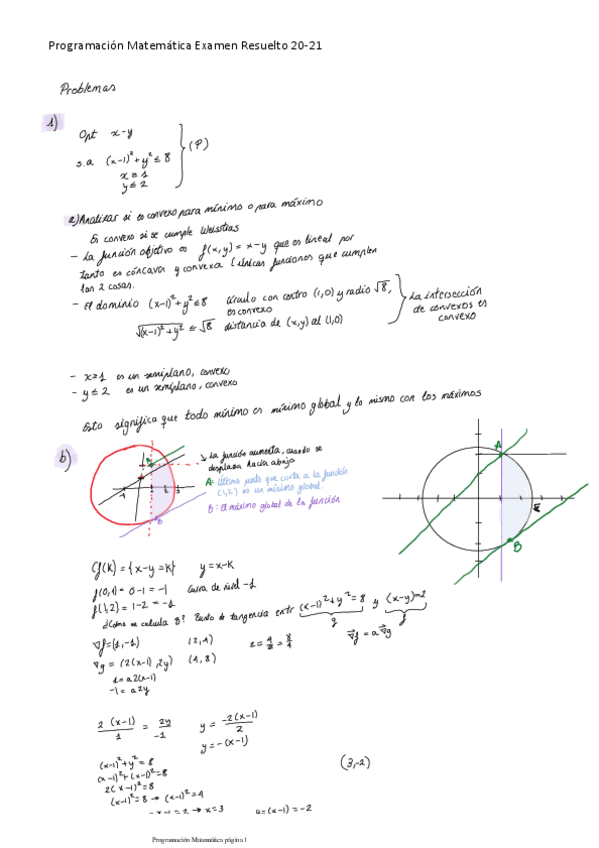 Programación Matemática Examen Resuelto 20-21
Problemas
1)
Opt x-y
s.a (x-1)²+y² ≤ 8
x ≥ 1
y ≤ 2
(P)
a) Analizar si es convexo para mínimo o para máximo
Es convexo si se cumple
- La función objetivo es f(x,y) = x-y que es lineal por
tanto es cóncava y convexa (únicas funciones que cumplen
las 2 cosas.
- El dominio (x-1)²+y² ≤ 8 círculo con centro (1,0) y radio √8,
es convexo
√(x-1)²+y² ≤ √8 distancia de (x,y) al (1,0)
La intersección
de convexos es
convexo
- x≥1 es un semiplano, convexo
- y ≤ 2 es un semiplano, convexo
Esto significa que todo mínimo es mínimo global y lo mismo con los máximos
b)
-1 1 2 3
La función aumenta, cuando se
desplaza hacia abajo
A: último punto que corta a la función
(1,2) es un mínimo global.
B: El máximo global de la función
A
B
G(K) = {x-y = K} y = x-K
f(0,1) = 0-1 = -1 Curva de nivel -1
f(1,2) = 1-2 = -1
¿Cómo se calcula B? Punto de tangencia entr (x-1)²+y² = 8 y (x-y)=2
g f
∇f = (1,-1)
∇f = a ∇g
∇g = (2(x-1), 2y)
1 = a2(x-1)
-1 = a2y
2(x-1)/1 = 2y/-1 y = -2(x-1)/2
y = -(x-1)
(x-1)²+y² = 8
(x-1)²+(x-1)² = 8
2(x-1)² = 8
(x-1)² = 8 → (x-1)² = 4
(3,-2)
x-1 = 2 → x=3 y=-(x-1) = -2
Programación Matemática página 1